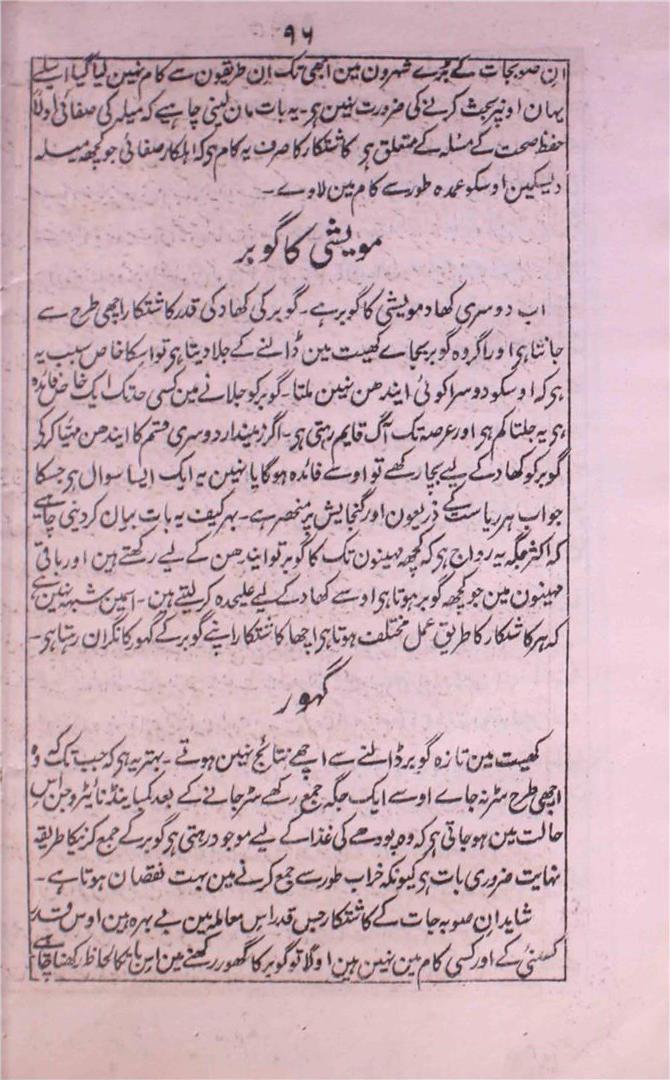 ۹۶
ان صوبجات کے بڑے شہرون مین ابھی تک ان طریقون سے کام نہین لیا گیا اسلیے
یہان اونپر بحث کرنے کی ضرورت نہین ہی۔ یہ بات مان لینی چاہیے کہ میلہ کی صفائی اولاً
حفظ صحت کے مسئلہ کے متعلق ہی کاشتکار کا صرف یہ کام ہی کہ اہلکار صفائی جو کچھ میلہ
دیسکین اوسکو عمدہ طور سے کام مین لاوے۔
مویشی کا گوبر
اب دوسری کھاد مویشی کا گوبر ہے۔ گوبر کی کھاد کی قدر کاشتکار اچھی طرح سے
جانتا ہی اور اگر وہ گوبر بجاے کھیت مین ڈالنے کے جلا دیتا ہی تو اسکا خاص سبب یہ
ہی کہ اوسکو دوسرا کوئی ایندھن نہین ملتا۔ گوبر کو جلانے مین کسی حد تک ایک خاص فائدہ
ہی یہ جلتا کم ہی اور عرصہ تک آگ قایم رہتی ہی۔ اگر زمیندار دوسری قسم کا ایندھن مہیّا کر کے
گوبر کو کھاد کے لیے بچا رکھے تو اوسے فائدہ ہوگا یا نہین یہ ایک ایسا سوال ہی جسکا
جواب ہر ریاست کے ذریعون اور گنجایش پر منحصر ہے۔ بہر کیف یہ بات بیان کر دینی چاہیے
کہ اکثر جگہ یہ رواج ہی کہ کچھ مہینون تک کا گوبر تو ایندھن کے لیے رکھتے ہین اور باقی
مہینون مین جو کچھ گوبر ہوتا ہی اوسے کھاد کے لیے علیحدہ کر لیتے ہین۔ اسمین شبہہ نہین ہے
کہ ہر کاشتکار کا طریق عمل مختلف ہوتا ہی اچھا کاشتکار اپنے گوبر کے گہور کا نگران رہتا ہی۔
گہور
کھیت مین تازہ گوبر ڈالنے سے اچھے نتائج نہین ہوتے۔ بہتر یہ ہی کہ جب تک کہ وہ
اچھی طرح سڑ نہ جاے اوسے ایک جگہ جمع رکھے سڑ جانے کے بعد کمباینڈ نائیٹروجن اس
حالت مین ہو جاتی ہی کہ وہ پودھے کی غذا کے لیے موجود رہتی ہی گوبر کے جمع کرنیکا طریقہ
نہایت ضروری بات ہی کیونکہ خراب طور سے جمع کرنے مین بہت نقصان ہوتا ہے۔
شاید ان صوبہ جات کے کاشتکار جس قدر اس معاملہ مین بے بہرہ ہین اوس قدر
کھیتی کے اور کسی کام مین نہین ہین اولاً تو گوبر کا گھور رکھنے مین اس بات کا لحاظ رکھنا چاہیے